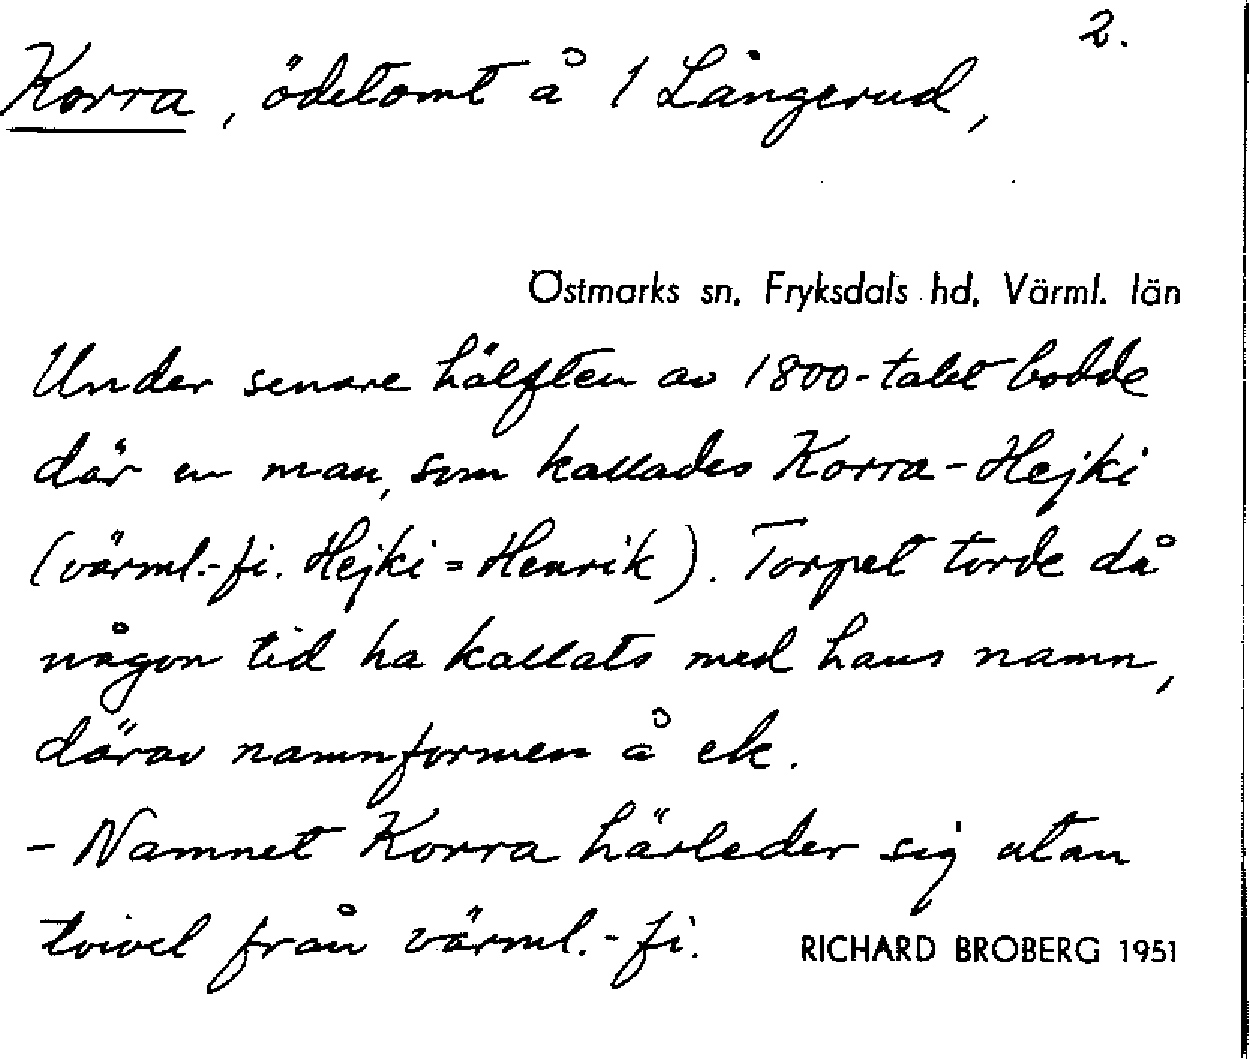 2.
Korra, ödetomt å 1 Långerud,
Östmarks sn. Fryksdals hd. Värml. län
Under senare hälften av 1800-talet bodde
där en man, som kallades Korra-Hejki
(värml.-fi. Hejki = Henrik). Torpet torde då
någon tid ha kallats med hans namn,
därav namnformen å ek.
- Namnet Korra härleder sig utan
tvivel från värml.-fi.
RICHARD BROBERG 1951